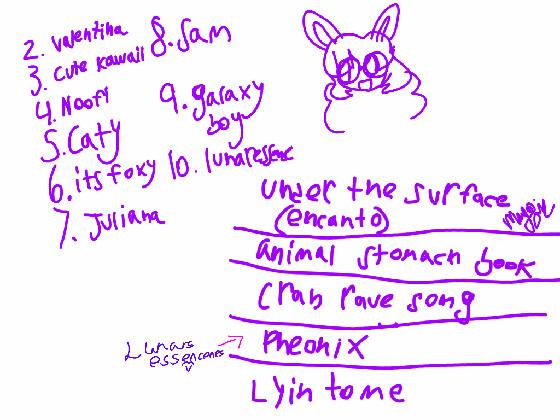 2. valentina
3. cute kawaii
4. Noofy
5. Caty
6. its foxy
7. Juliana
8. Sam
9. galaxy
boy
10. lunaressenc
under the surface
(encanto)
animal stomach book
crab rave song
Lunars
essences
Pheonix
Lyin to me